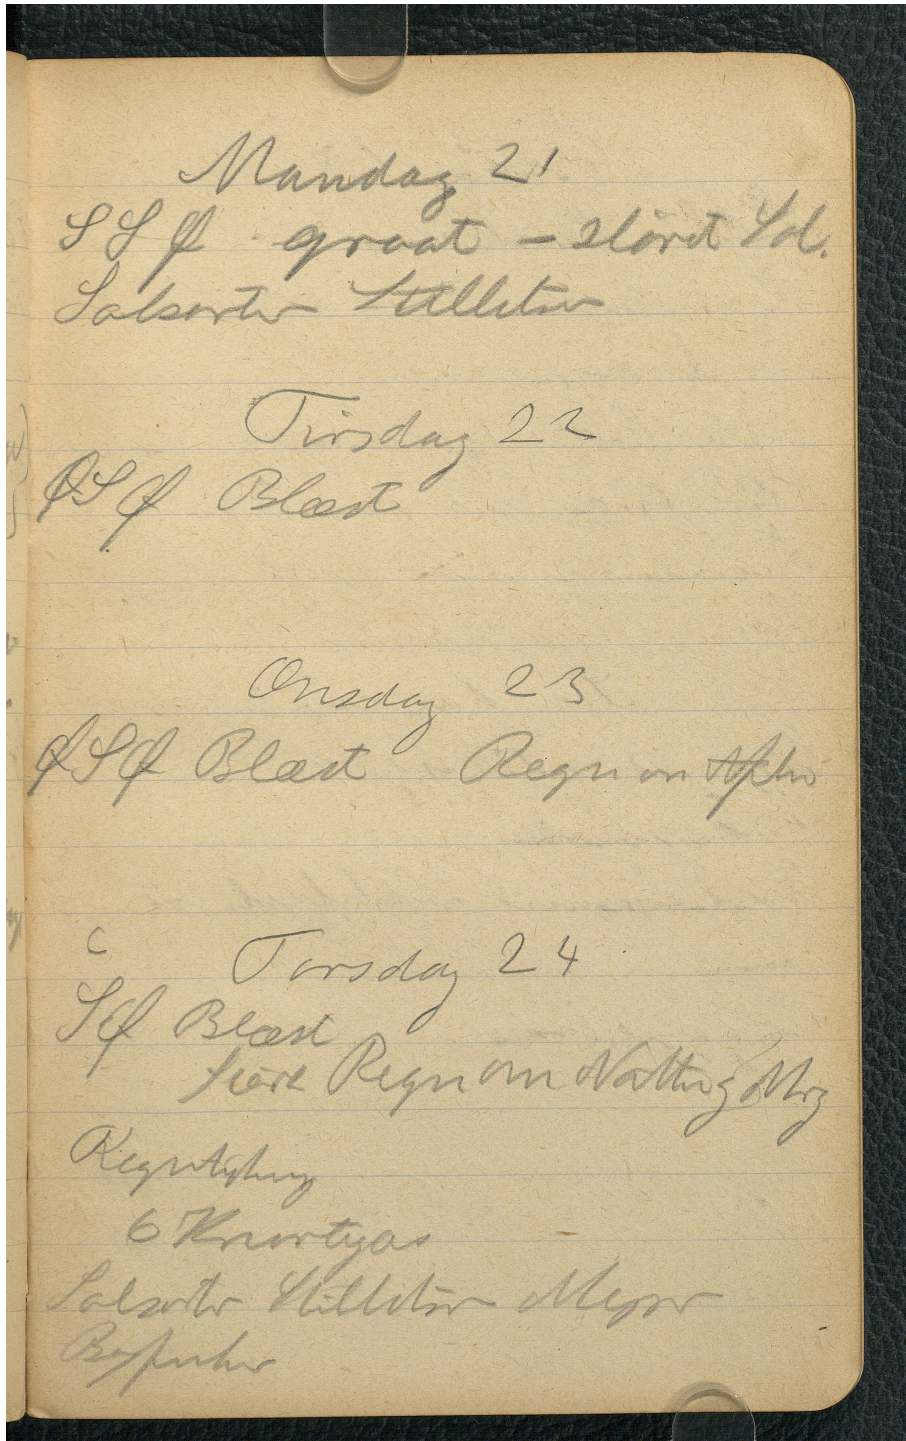 Mandag 21
S S Ø graat – sløret Sol.
Solsorter Stillitser
Tirsdag 22
ØSØ Blæst
Onsdag 23
ØSØ Blæst Regn om Aftn
Torsdag 24
SØ Blæst
Stærk Regn om Natten og Mrg
Regntykning
6 Knortgæs
Solsorter Stillitser Mejser
Bogfinker